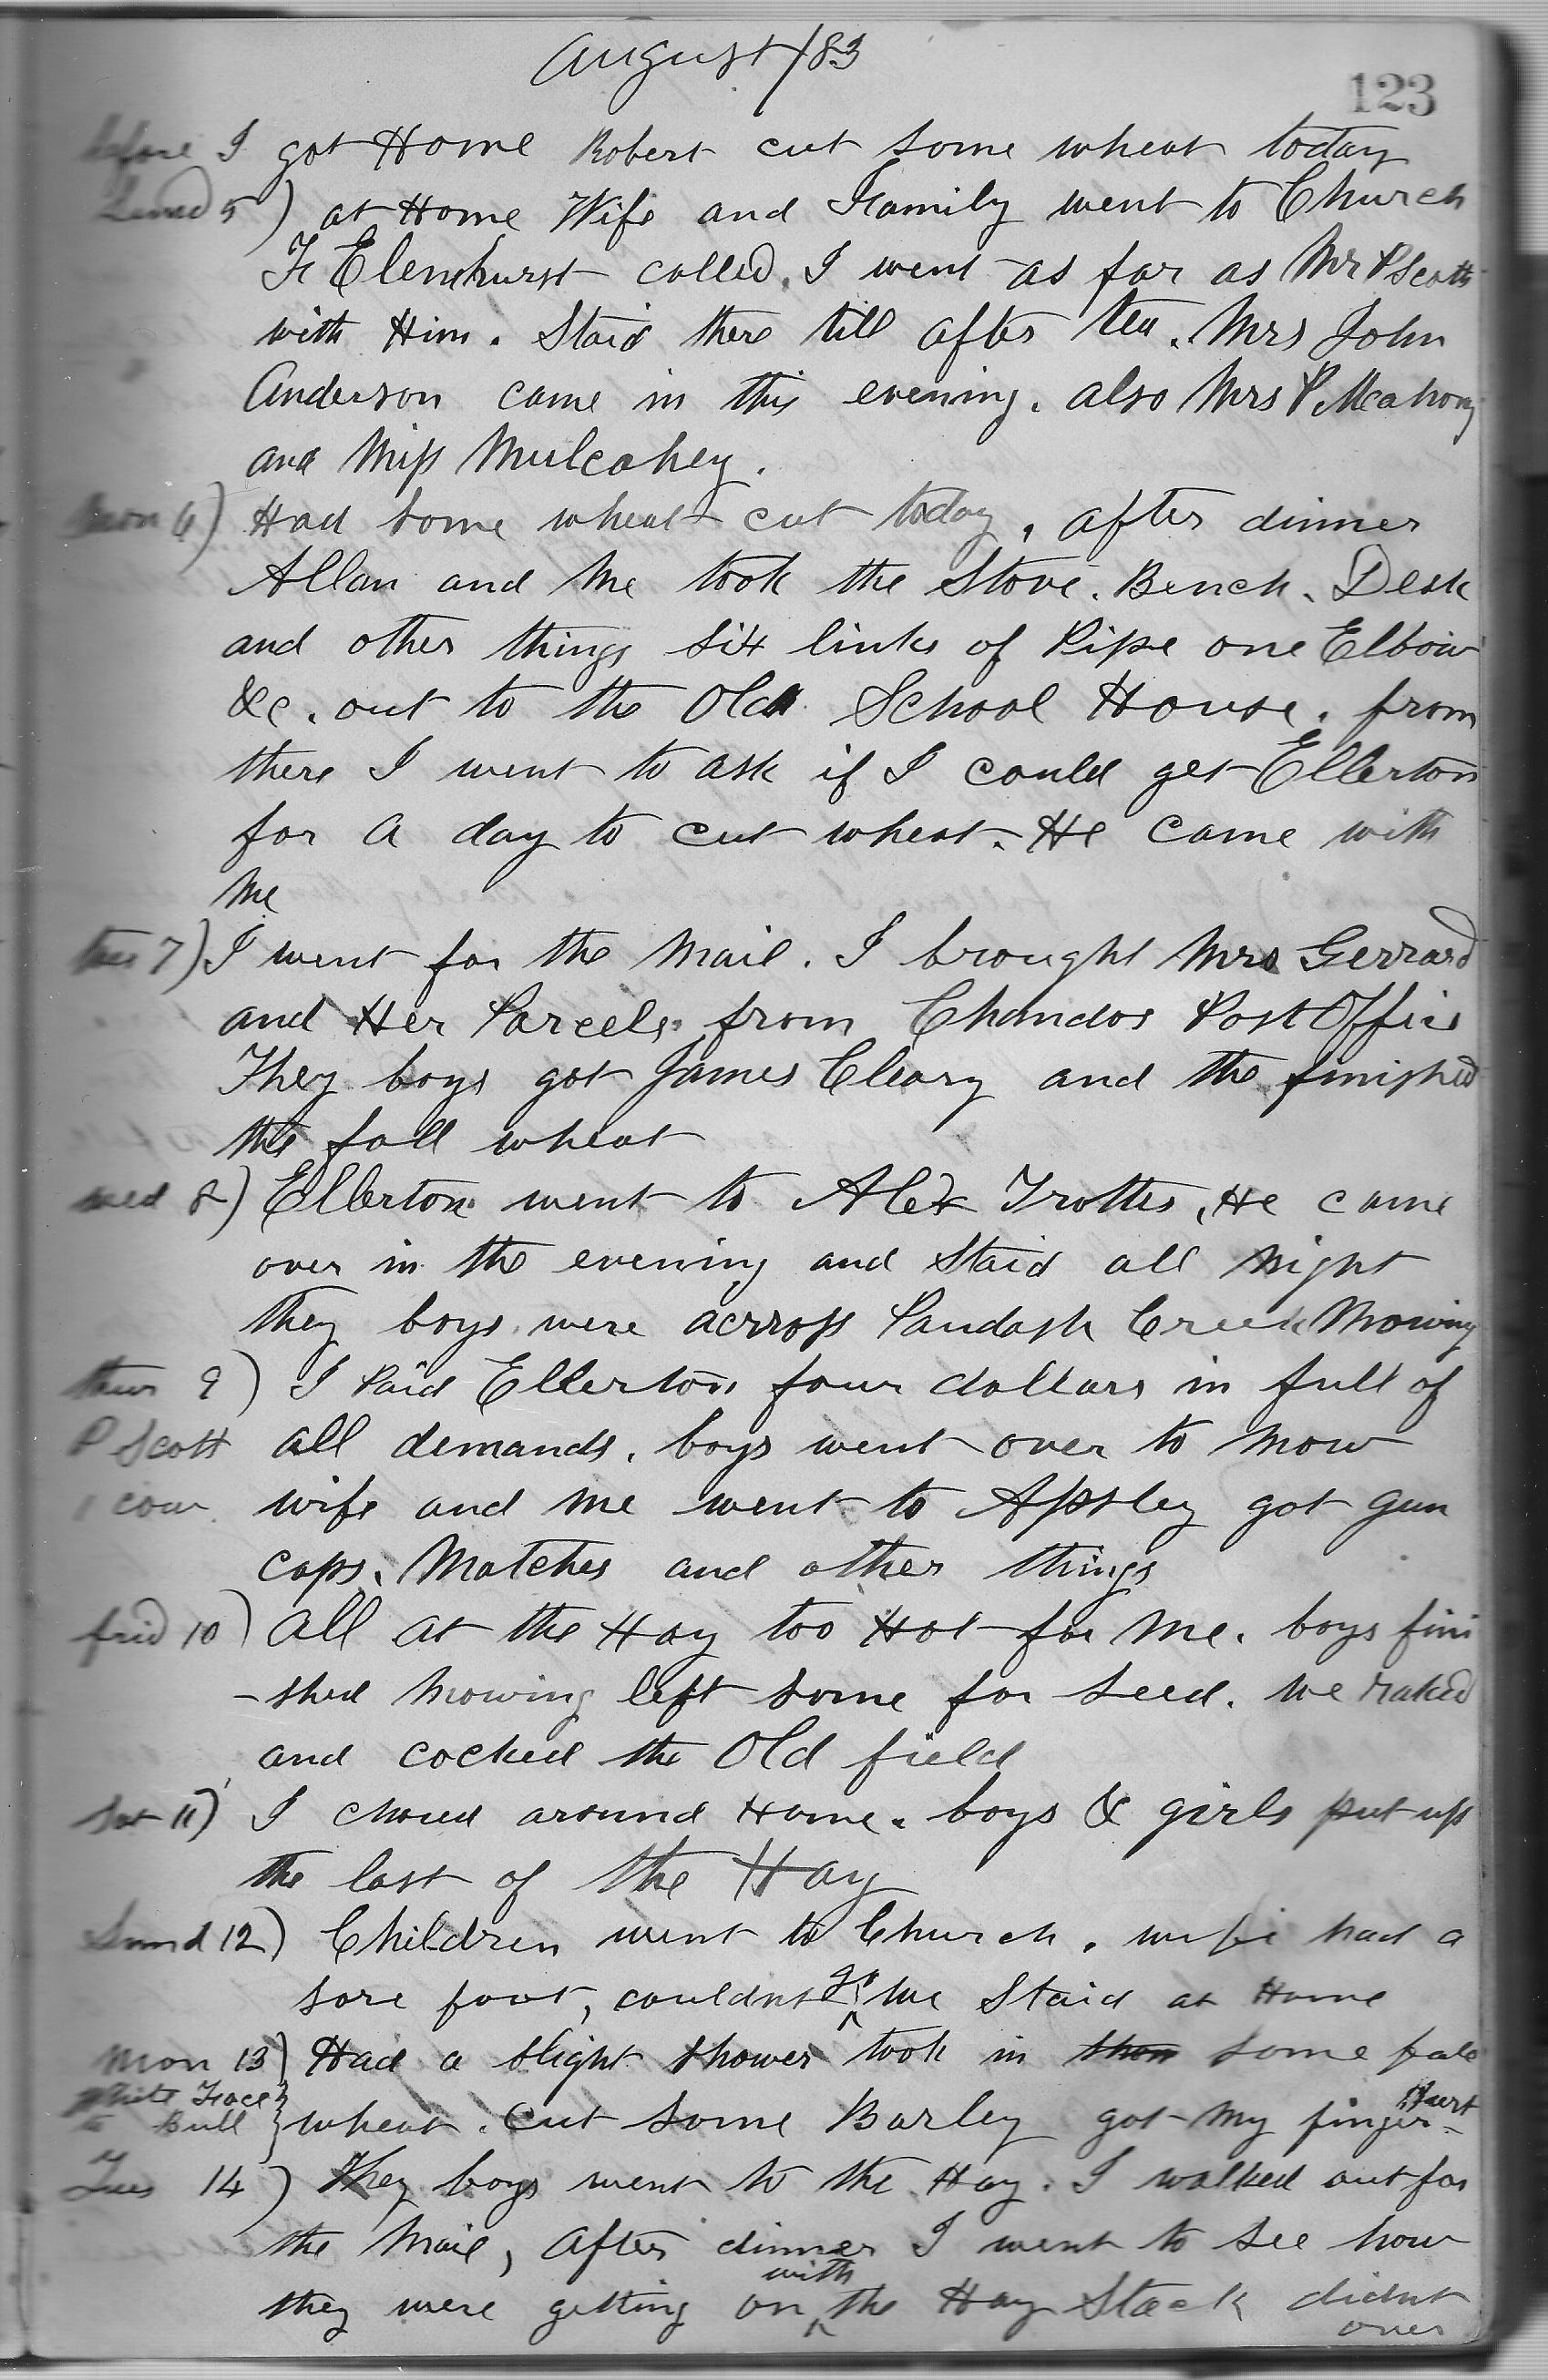 August /83
123
before I got Home Robert cut some wheat today
Sund 5) at Home Wife and Family went to Church
Fr Elemhurst called. I went as far as Mr P Scotts
with Him. Staid there till after tea. Mrs John
Anderson came in this evening. also Mrs P. Meahony
and Miss Mulcahey.
Mon 6) Had some wheat cut today, after dinner
Allan and Me took the Stove. Bench. Desk
and other things six links of Pipe one Elbow
&c. out to the Old School House. from
there I went to ask if I could get Ellerton
for a day to cut wheat. He came with
Me
tues 7) I went for the Mail. I brought Mrs Gerrard
and Her Parcels from Chandos Post Office
They boys got James Cleary and the finished
the fall wheat
wed 8) Ellerton went to Alex Trotters, He came
over in the evening and Staid all Night
they boys were across Paudash Creek Mowing
thur 9) I Paid Ellerton four dollars in full of
P Scott all demands. boys went over to Mow
1 cow. wife and Me went to Apsley got gun
caps. Matches and other things
frid 10) all at the Hay too Hot for Me. boys fini
-shed Mowing left some for Seed. We raked
and cocked the Old field
Sat 11) I chored around Home. boys & girls put up
the last of the Hay
Sund 12) Children went to Church. wife had a
sore foot, couldnt go We Staid at Home
Mon 13) Had a slight shower took in some fall
White Face
to Bull } wheat. Cut some Barley got My finger Hurt
Tues 14) They boys went to the Hay. I walked out for
the Mail, After dinner I went to see how
they were getting on with the Hay Stack didnt
over